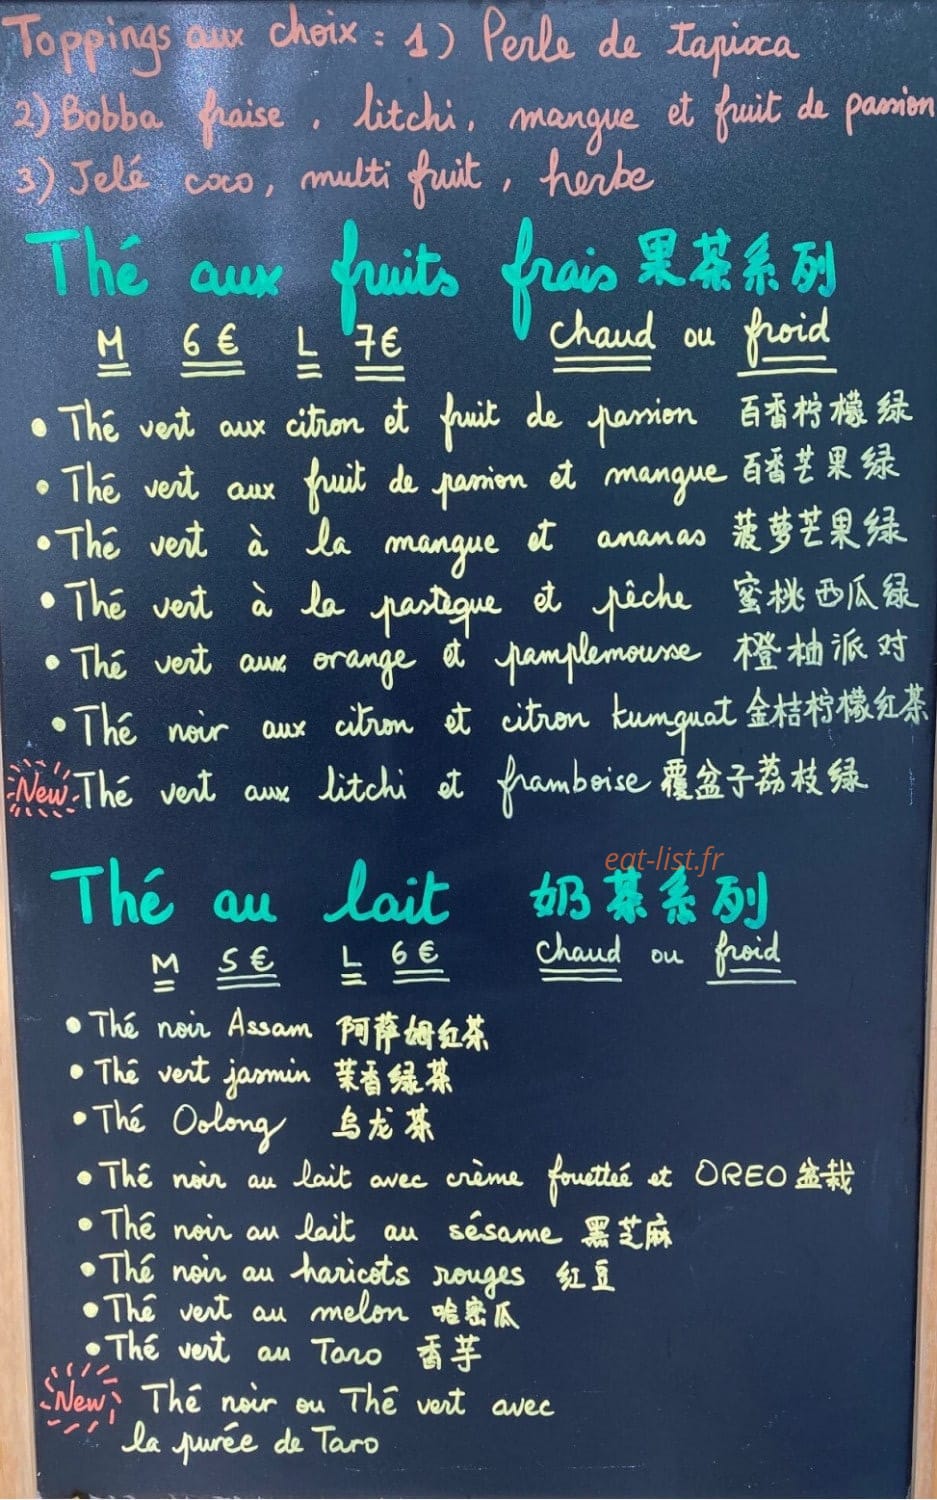 Toppings aux choix : 1) Perle de tapioca
2) Bobba fraise, litchi, mangue et fruit de passion
3) Jelé coco, multi fruit, herbe
Thé aux fruits frais 果茶系列
M 6€ L 7€ chaud ou froid
• Thé vert aux citron et fruit de passion 百香柠檬绿
• Thé vert aux fruit de passion et mangue 百香芒果绿
• Thé vert à la mangue et ananas 菠萝芒果绿
• Thé vert à la pastèque et pêche 蜜桃西瓜绿
• Thé vert aux orange et pamplemousse 橙柚派对
• Thé noir aux citron et citron kumquat 金桔柠檬红茶
New Thé vert aux litchi et framboise 覆盆子荔枝绿
eat-list.fr
Thé au lait 奶茶系列
M 5€ L 6€ chaud ou froid
• Thé noir Assam 阿萨姆红茶
• Thé vert jasmin 茉香绿茶
• Thé Oolong 乌龙茶
• Thé noir au lait avec crème fouettée et OREO 盆栽
• Thé noir au lait au sésame 黑芝麻
• Thé noir au haricots rouges 红豆
• Thé vert au melon 哈密瓜
• Thé vert au Taro 香芋
New Thé noir ou Thé vert avec
la purée de Taro